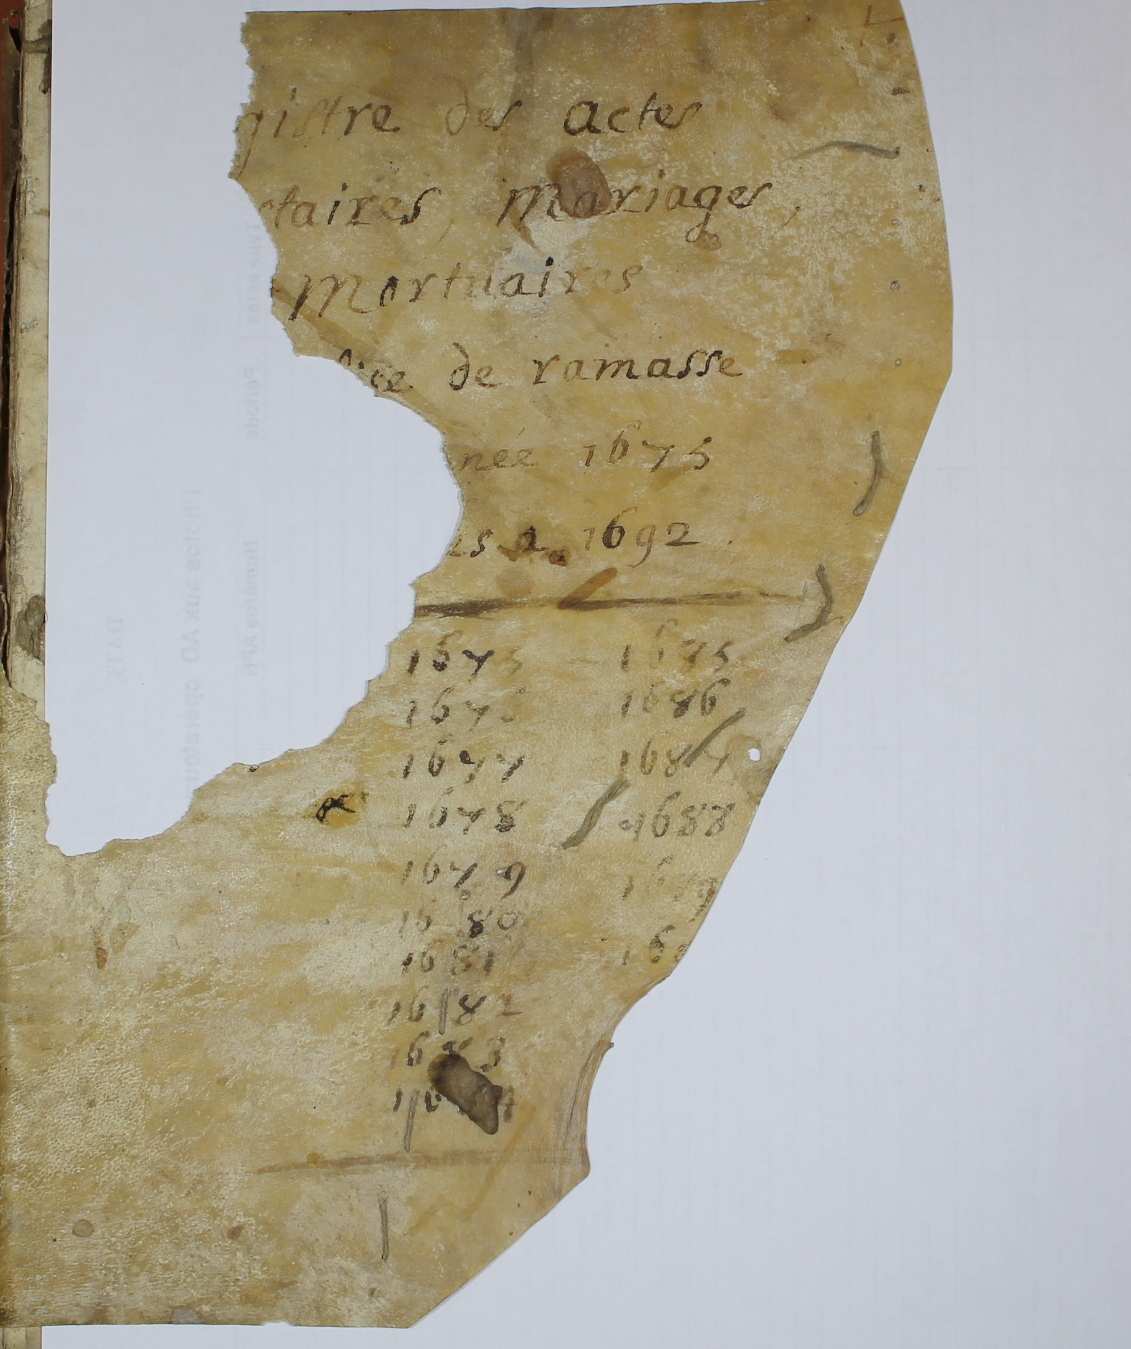 gistre des actes
taires, Mariages,
Mortuaires
de ramasse
née 1675
es a 1692
1675 1675
1676 1686
1677 1687
1678 1688
1679
1680
1681
1682
1683